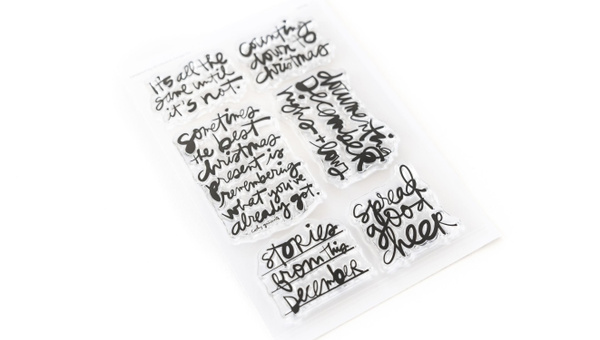 it's all the
same until
it's not.
Counting
down to
christmas
Sometimes
the best
christmas
present is
remembering
what you've
already got.
documenting
December
highs + lows
stories
from this
December
spread
good
cheer